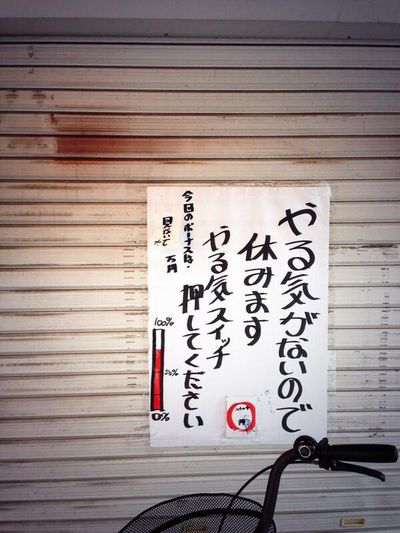 やる気がないので
休みます
やる気スイッチ
押してください
今日のボーナスは・
万円
100%
50%
0%
押